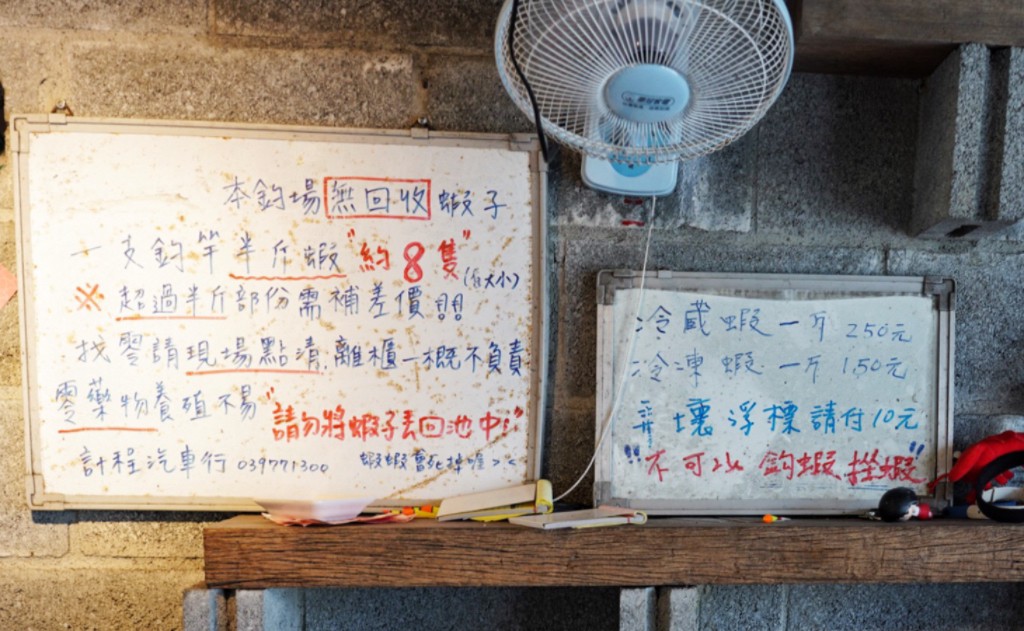 本釣場無回收蝦子
一支釣竿半斤蝦"約8隻"(包大小)
※超過半斤部份需補差價!!!!
找零請現場點清,離櫃一概不負責
零藥物養殖不易"請勿將蝦子丟回池中!"
計程汽車行 039771300 蝦蝦會死掉喔><
冷藏蝦一斤 250元
冷凍蝦一斤 150元
弄壞浮標請付10元
"不可以釣蝦搓蝦"